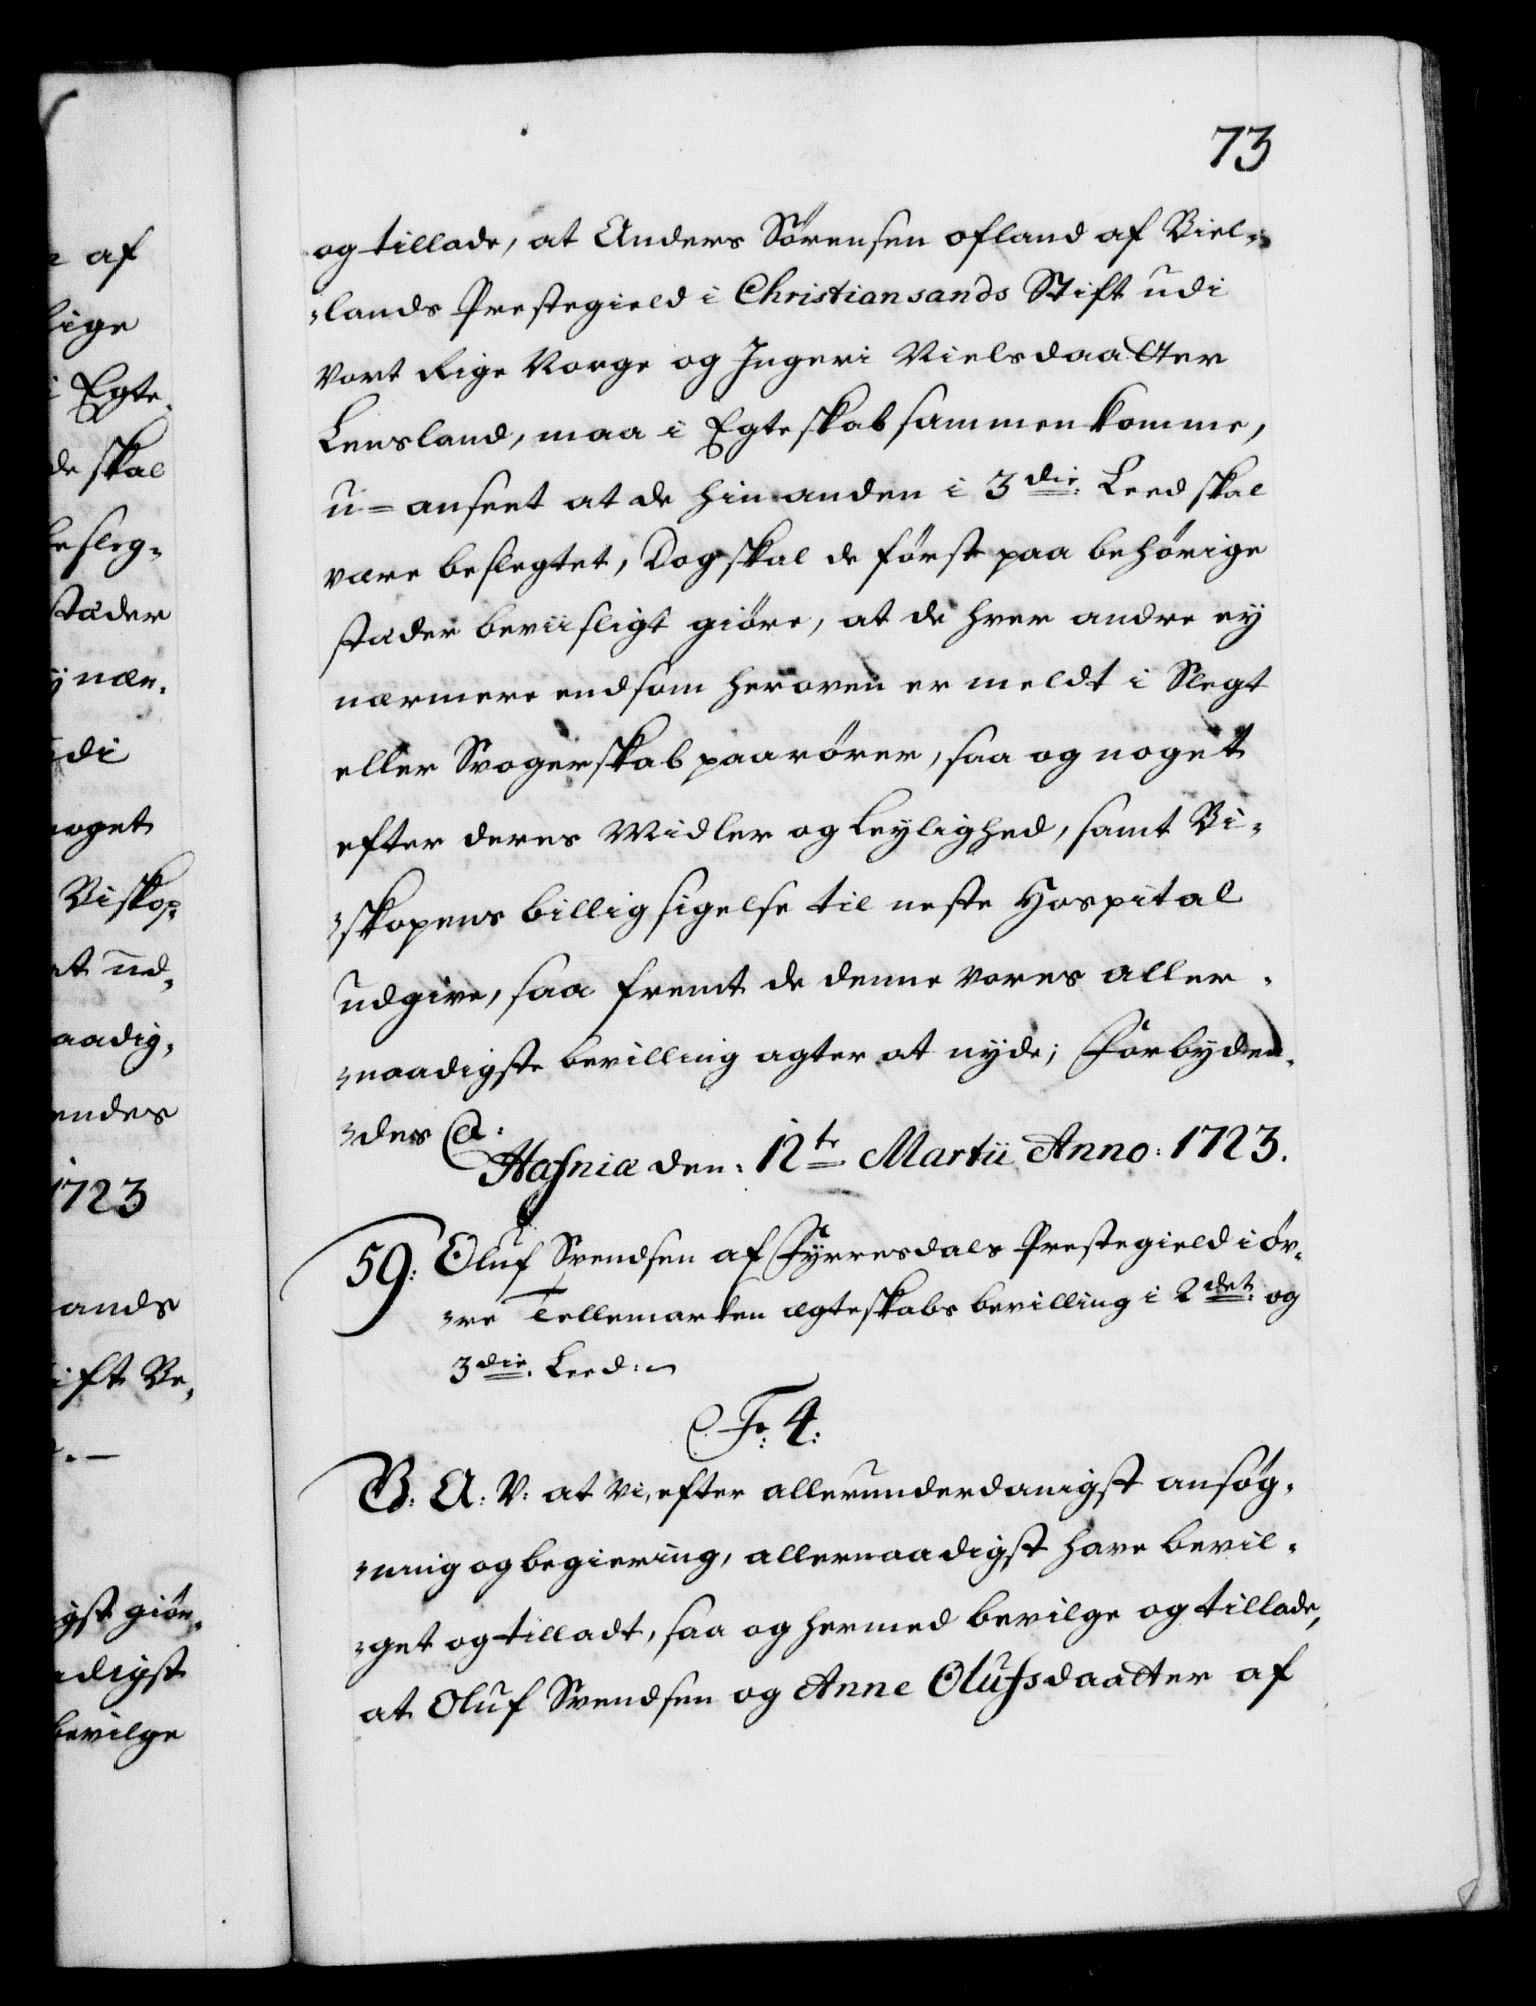 73
og tillade, at Anders Sörensen ofland af Biel-
-lands Prestegield i Christiansands Stift udi
Vort Rige Norge og Ingeri Nielsdaatter
Lensland, maa i Egteskab sammenkomme,
u=anseet at de hinanden i 3die: Leed skal
være beslegtet, Dog skal de först paa behörige
stæder beviisligt giöre, at de hver andre ey
nærmere end som heroven er meldt i Slegt
eller Svogerskab paarörer, saa og noget
efter deres Midler og leylighed, samt Bi-
-skopens billigsigelse til neste Hospital
udgive, saa fremt de denne vores aller-
-naadigste bevilling agter at nyde; Forbyden-
-des &:
Hafniæ den: 12te Martii Anno: 1723.
59: Oluf Svendsen af Fyrresdals Prestegield i öv-
-re Tellemarken ægteskabs bevilling i 2det: og
3die. Leed:
Fr: 4:
G: A: V: at Vi, efter allerunderdanigst ansög-
-ning og begiering, allernaadigst have bevil-
-get og tilladt, saa og hermed bevilge og tillade,
at Oluf Svendsen og Anne Olufsdaatter af
af
ige
Egte-
de skal
besleg-
stæder
y nær-
udi
noget
Biskop-
at ud-
aadig-
endes
1723
ands
ift Be-
ygst giör-
adigst
bevilge